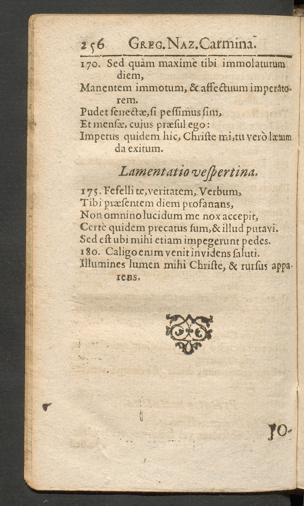 256 GREG. NAZ. Carmina.
170. Sed quàm maximè tibi immolaturum
diem,
Manentem immotum, & affectuum imperato-
rem.
Pudet senectæ, si pessimus sim,
Et mensæ, cujus præsul ego:
Impetus quidem hic, Christe mi, tu verò lætum
da exitum.
Lamentatio vespertina.
175. Fefelli te, veritatem, Verbum,
Tibi præsentem diem profanans,
Non omnino lucidum me nox accepit,
Certè quidem precatus sum, & illud putavi.
Sed est ubi mihi etiam impegerunt pedes.
180. Caligo enim venit invidens saluti.
Illumines lumen mihi Christe, & rursus appa-
rens.
JO-